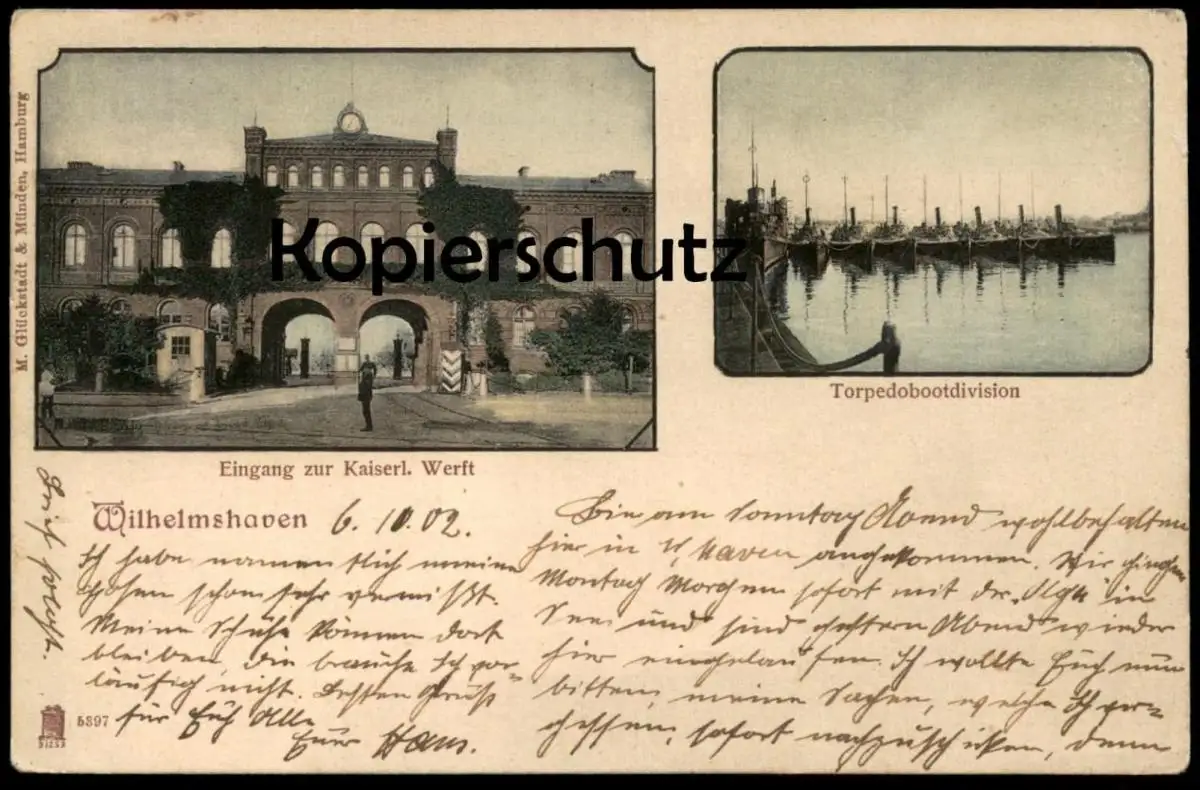 M. Glückstadt & Münden, Hamburg
Kopierschutz
Eingang zur Kaiserl. Werft
Torpedobootdivision
Wilhelmshaven
6. 10. 02.
Bin am Sonntag Abend wohlbehalten
hier in W'haven angekommen. Wir gingen
Montag Morgen sofort mit der „Olga" in
See und sind gestern Abend wieder
hier eingelaufen. Ich wollte Euch nun
bitten, meine Sachen, welche Ich ver=
gessen, sofort nachzuschicken, denn
Ich habe namentlich meine
Hosen schon sehr vermißt.
Meine Schuhe können dort
bleiben, die brauche Ich vor=
läufig nicht. Besten Gruß
für Euch Alle
Euer Hans.
5397